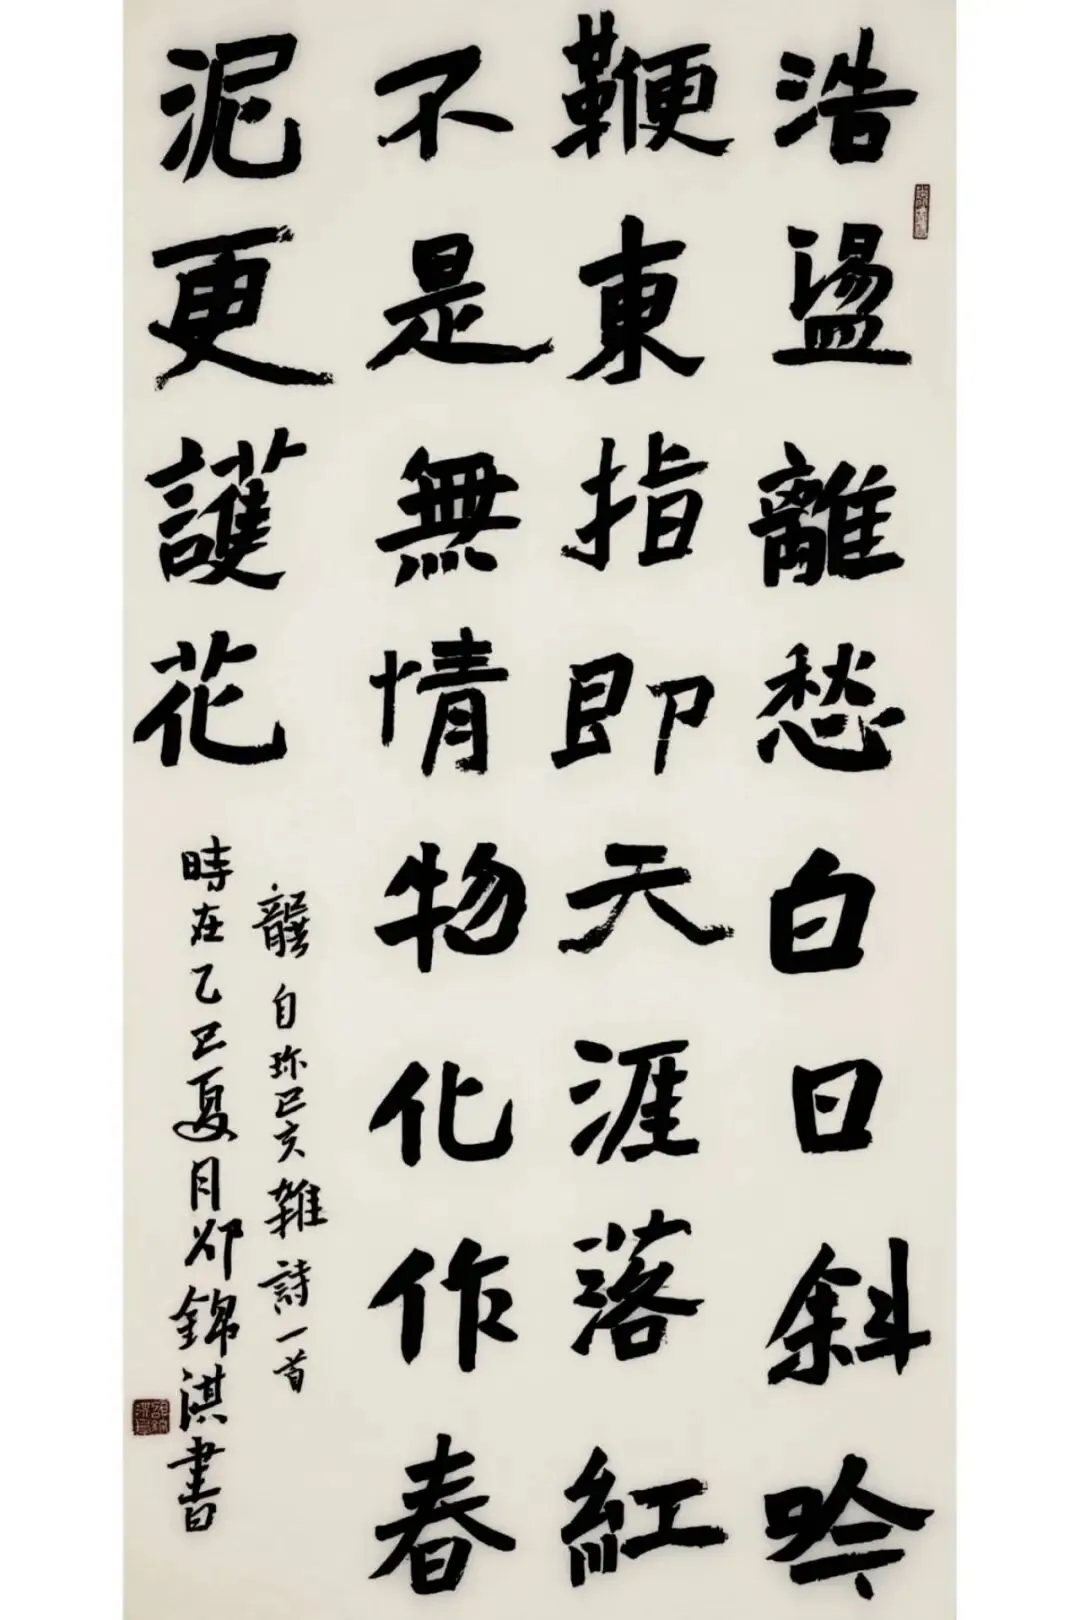 浩盪離愁白日斜吟
鞭東指即天涯落紅
不是無情物化作春
泥更護花
龔自珍己亥雜詩一首
時在乙巳夏月邵錦淇書